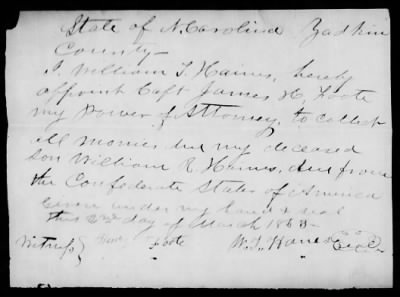 State of N. Carolina Yadkin
County—
I, William T. Haines, hereby
appoint Capt James H. Foote
my Power of Attorney, to collect
all monies due my deceased
son William R. Haines, due from
the Confederate States of America
Given under my hand & seal
this day of March 1863
Witness
Foote W. T. Haines